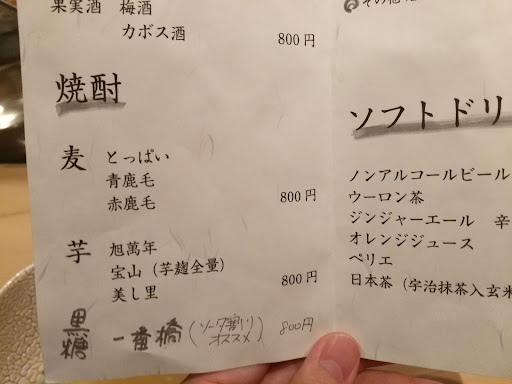 果実酒 梅酒
カボス酒 800円
焼酎
麦 とっぱい
青鹿毛
赤鹿毛 800円
芋 旭萬年
宝山（芋麹全量）
美し里 800円
黒糖 一番橋（ソーダ割り オススメ） 800円
その他
ソフトドリ
ノンアルコールビール
ウーロン茶
ジンジャーエール 辛
オレンジジュース
ペリエ
日本茶（宇治抹茶入玄米